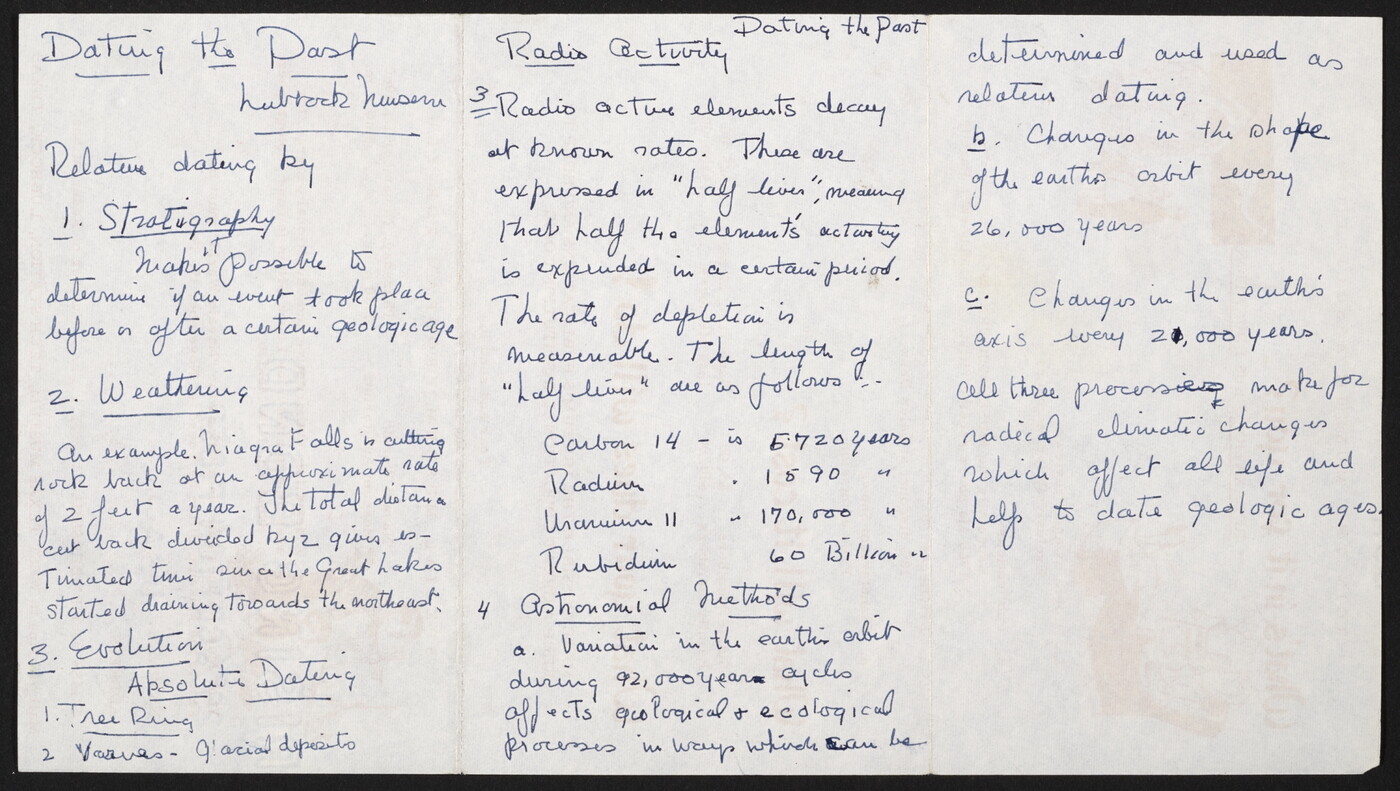 Dating the Past
Lubbock Museum
Relative dating by
1. Stratigraphy
Makes it possible to
determine if an event took place
before or after a certain geologic age
2. Weathering
An example. Niagra Falls is cutting
rock back at an approximate rate
of 2 feet a year. The total distance
cut back divided by 2 gives es-
timated time since the Great Lakes
started draining towards the northeast.
3. Evolution
Absolute Dating
1. Tree Ring
2 Varves - Glacial deposits
Dating the Past
Radio Activity
3 Radio active elements decay
at known rates. These are
expressed in "half lives", meaning
that half the element's activity
is expended in a certain period.
The rate of depletion is
measurable. The length of
"half lives" are as follows :-
Carbon 14 - is 5720 years
Radium " 1590 "
Uranium II " 170,000 "
Rubidium 60 Billion "
4 Astronomial Methods
a. Variation in the earth's orbit
during 92,000 year cycles
affects geological & ecological
processes in ways which can be
determined and used as
relative dating.
b. Changes in the shape
of the earths orbit every
26,000 years
c. Changes in the earth's
axis every 21,000 years.
All three processes make for
radical climatic changes
which affect all life and
help to date geologic ages.